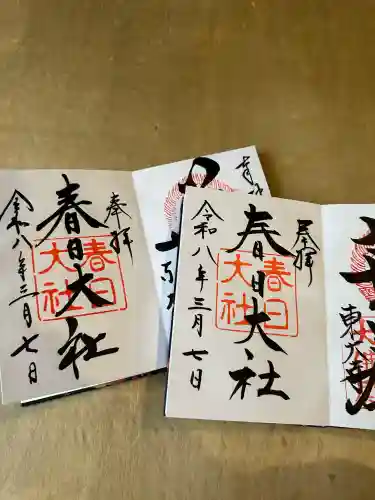 奉拝
春日大社
春日
大社
令和八年三月七日
奉拝
春日大社
春日
大社
令和八年三月七日
奉拝
東大寺